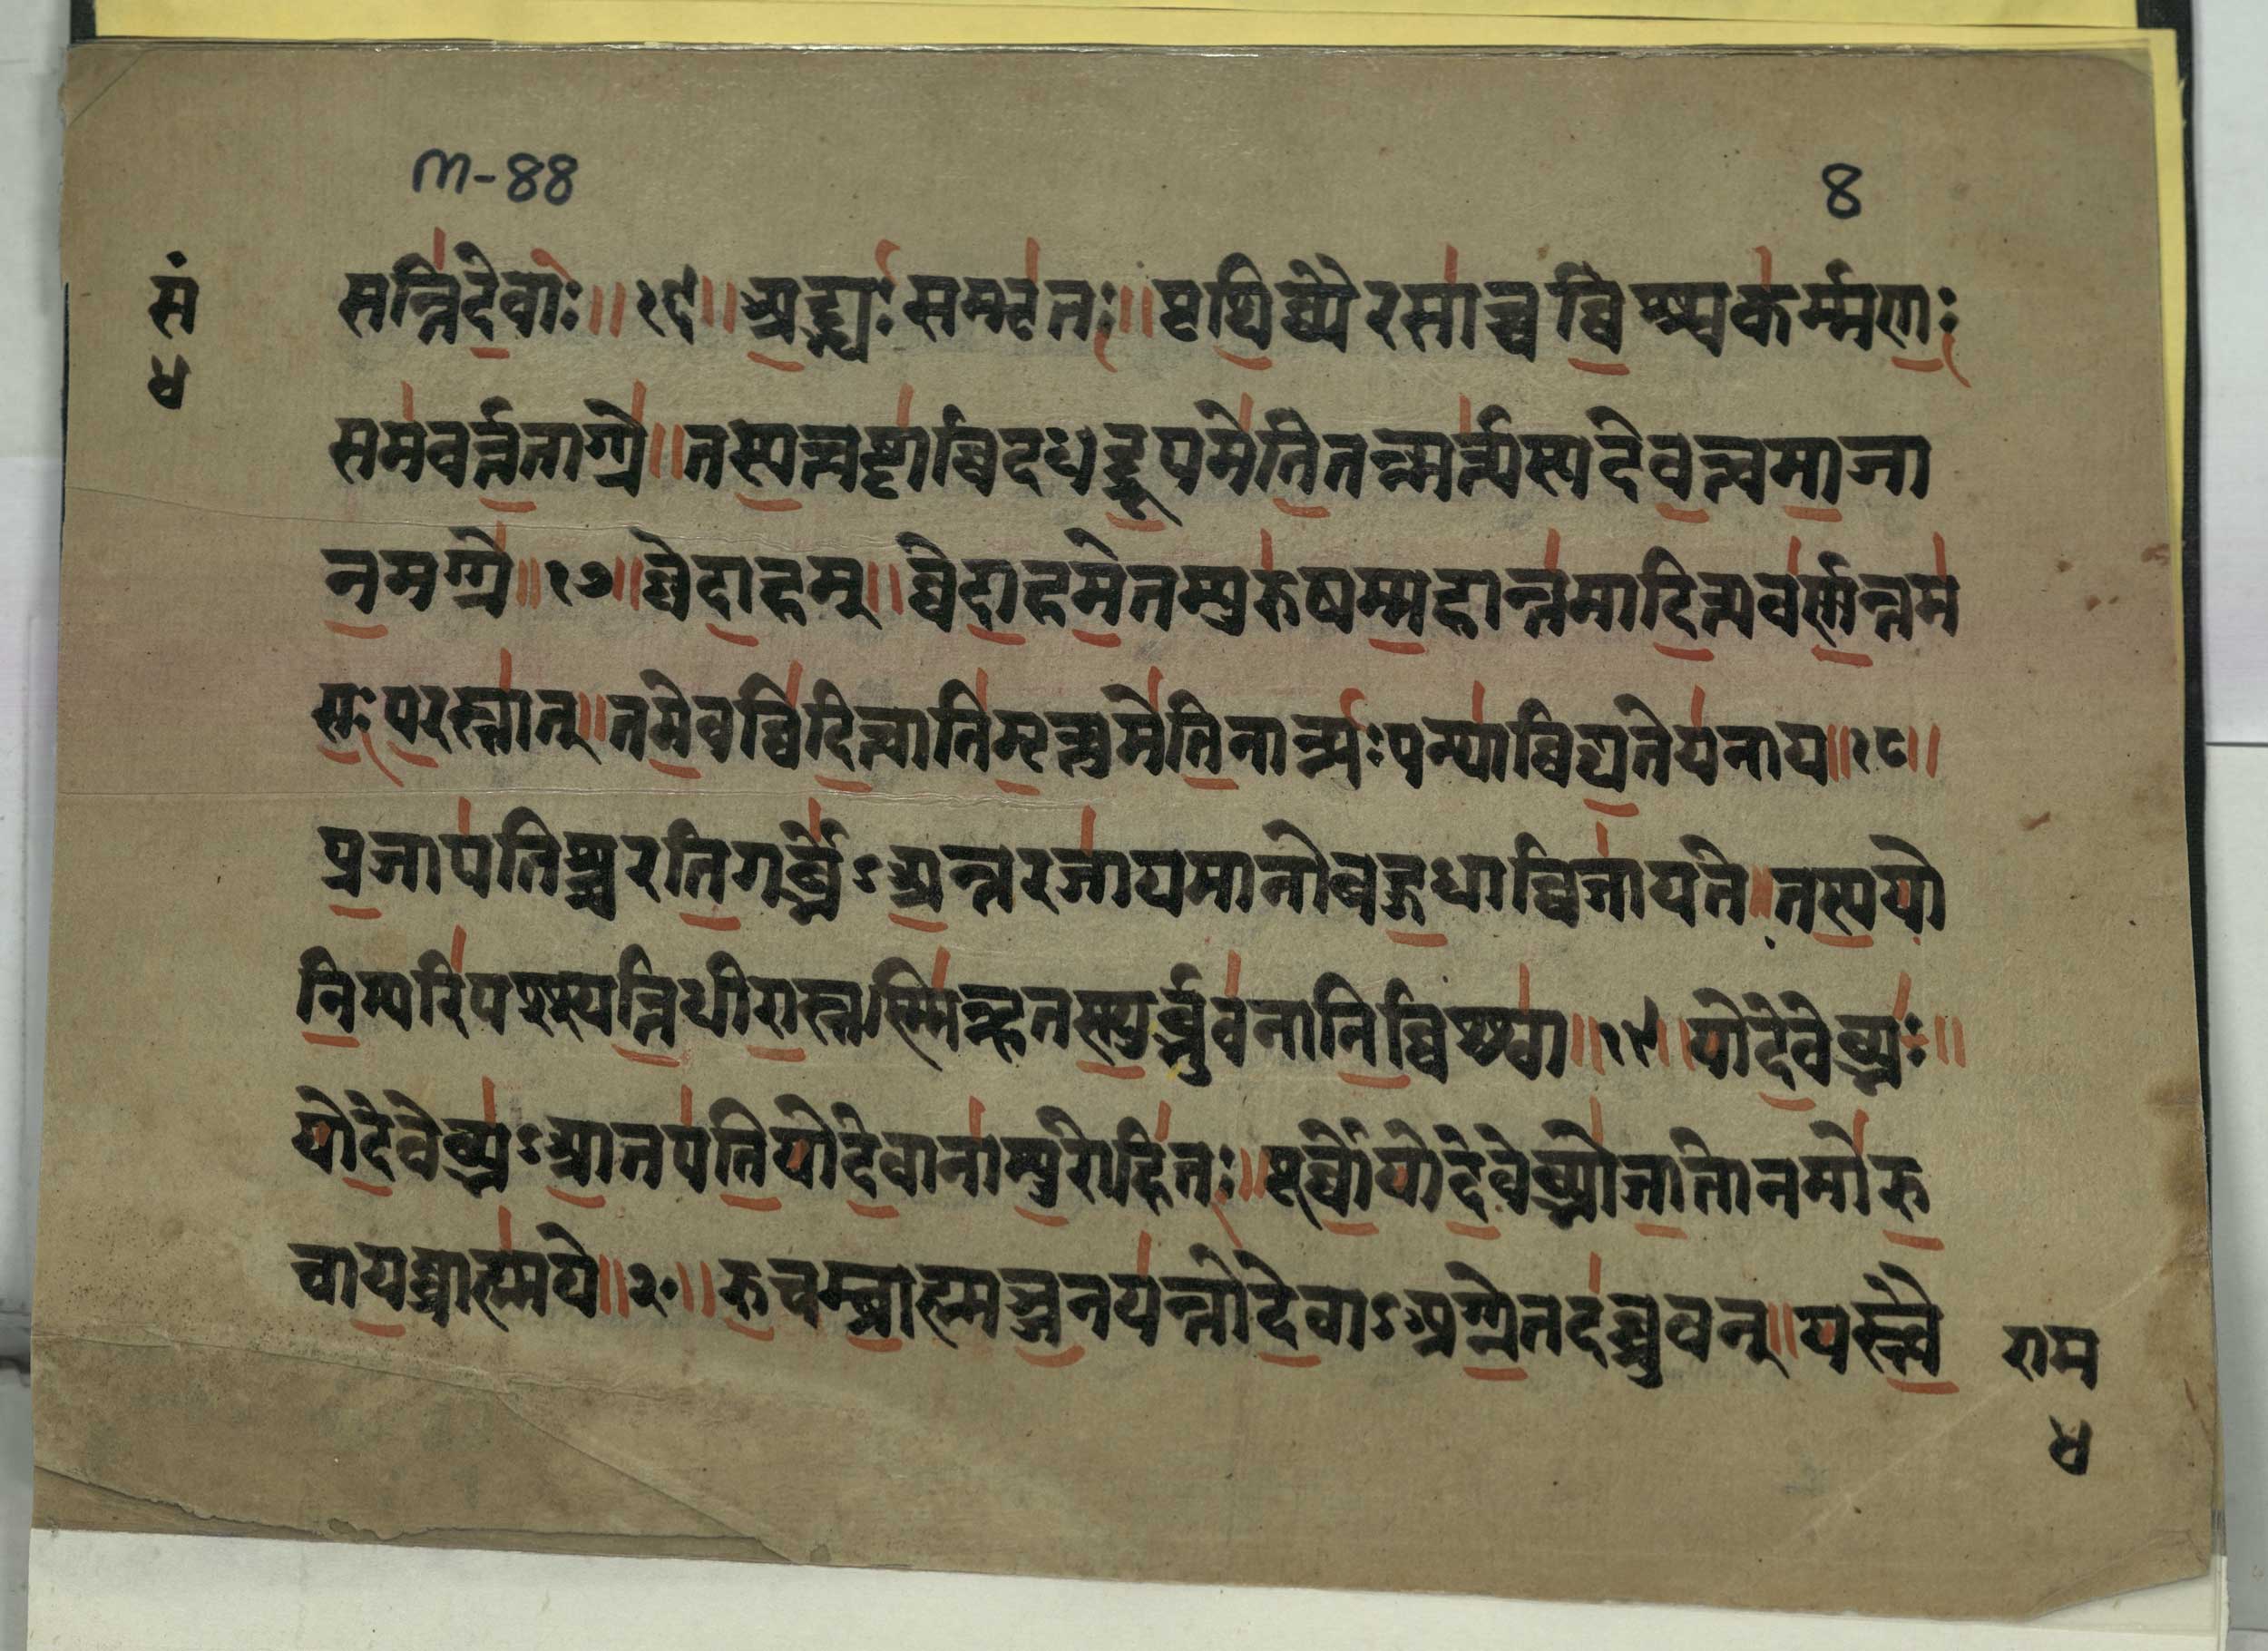 M-88 8
सं
४
सन्तिदेवाः॥१६॥अद्भ्यःसम्भृतः॥पृथिव्यैरसाच्चविश्श्वकर्म्मणः
समवर्त्तताग्ग्रे॥तस्यत्वष्टाविदधद्रूपमेतितन्मर्त्यस्यदेवत्वमाजा
नमग्ग्रे॥१७॥वेदाहम्॥वेदाहमेतम्पुरुषम्महान्तमादित्यवर्णन्तम
सःपरस्तात्॥तमेवविदित्वातिमृत्युमेतिनान्यःपन्थाविद्यतेयनाय॥१८॥
प्रजापतिश्चरतिगर्ब्भेऽअन्तरजायमानोबहुधाविजायते॥तस्ययो
निम्परिपश्श्यन्तिधीरास्तस्मिन्हतस्युर्ब्भुवनानिविश्श्वा॥१९॥योदेवेब्भ्यः॥
योदेवेब्भ्यऽआतपतियोदेवानाम्पुरोहितः॥पूर्वोयोदेवेब्भ्योजातोनमोरु
चायब्राह्मये॥२०॥रुचम्ब्राह्मञ्जनयन्तोदेवाऽअग्ग्रेतदब्ब्रुवन्॥यस्त्वै
राम
४